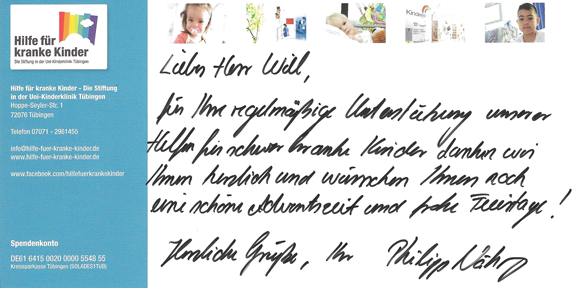 Hilfe für
kranke Kinder
Die Stiftung in der Uni-Kinderklinik Tübingen
Hilfe für kranke Kinder - Die Stiftung
in der Uni-Kinderklinik Tübingen
Hoppe-Seyler-Str. 1
72076 Tübingen
Telefon 07071 - 2981455
info@hilfe-fuer-kranke-kinder.de
www.hilfe-fuer-kranke-kinder.de
www.facebook.com/hilfefuerkrankekinder
Spendenkonto
DE61 6415 0020 0000 5548 55
Kreissparkasse Tübingen (SOLADES1TUB)
Lieber Herr Will,
für Ihre regelmäßige Unterstützung unserer
Helfen für schwer kranke Kinder danken wir
Ihnen herzlich und wünschen Ihnen noch
eine schöne Adventszeit und frohe Feiertage!
Herzliche Grüße, Ihr Philipp